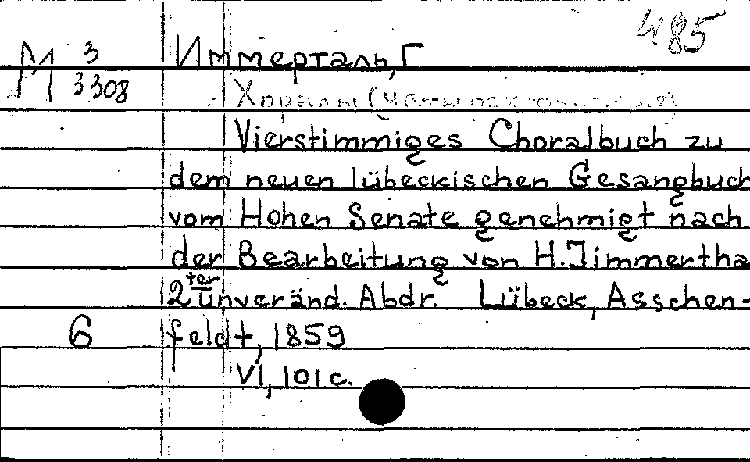 485
М 3 Иммерталь, Г
3308 Хоралы (
Vierstimmiges Choralbuch zu
dem neuen lübeckischen Gesangbuch
vom Hohen Senate genehmigt nach
der Bearbeitung von H. Jimmertha
2ter unveränd. Abdr. Lübeck, Asschen-
6 feldt, 1859
VI, 101 c.